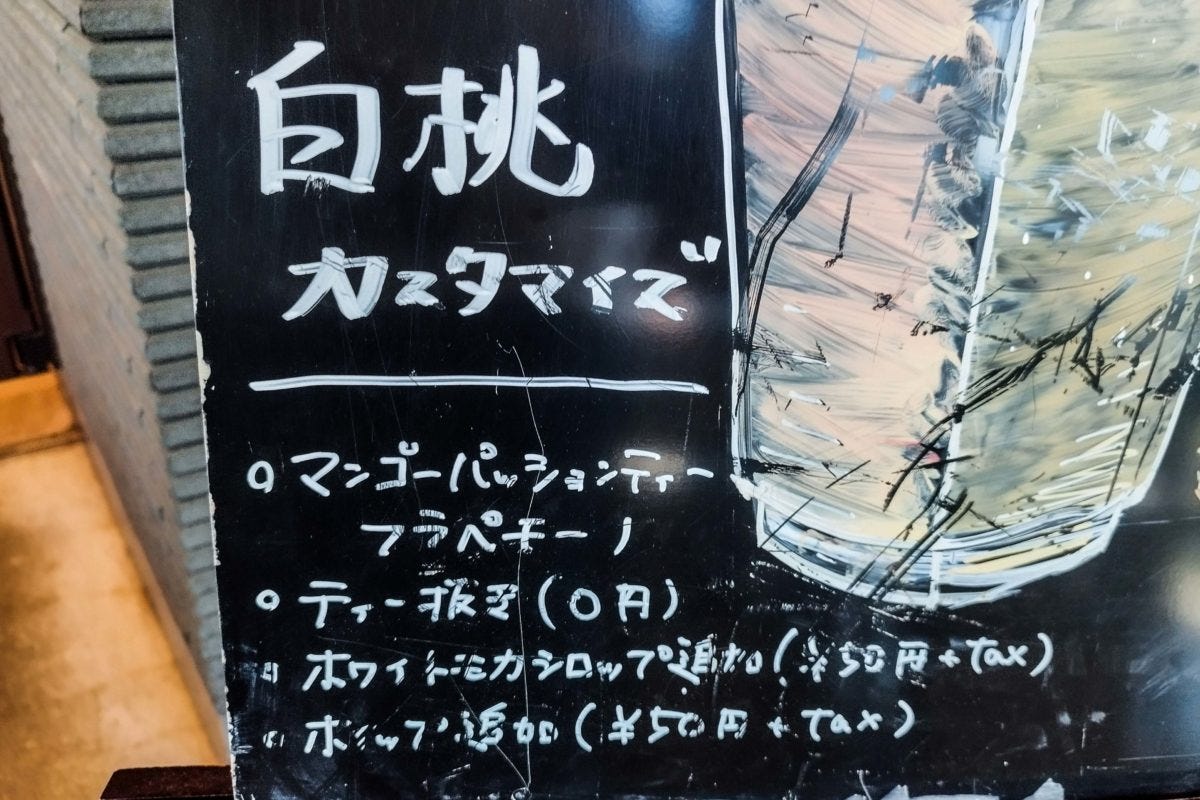 白桃
カスタマイズ
○ マンゴーパッションティー
フラペチーノ
○ ティー抜き(0円)
○ ホワイトモカシロップ追加(¥50円+tax)
○ ホイップ追加(¥50円+tax)